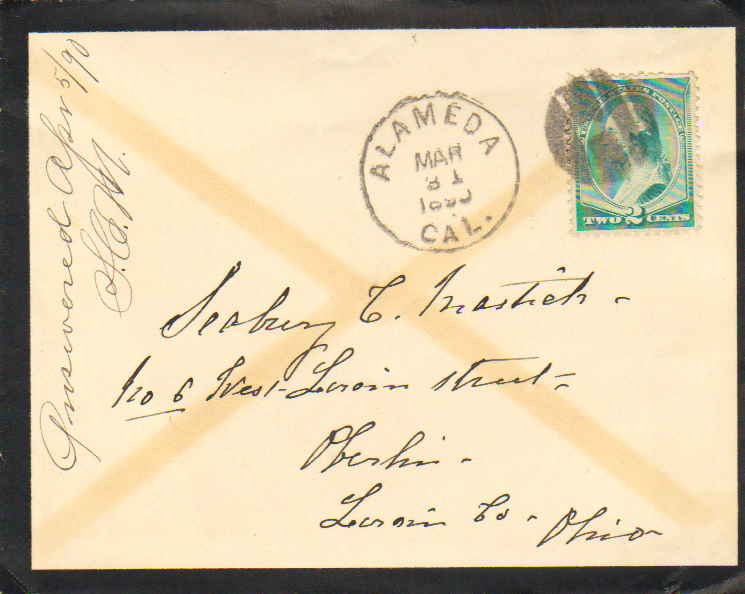 Answered Apr 5/90
S.C.M.
ALAMEDA
MAR
31
1890
CAL.
UNITED STATES POSTAGE
TWO 2 CENTS
Seabury C. Mastick -
No 6 West-Lorain street -
Oberlin -
Lorain Co - Ohio -